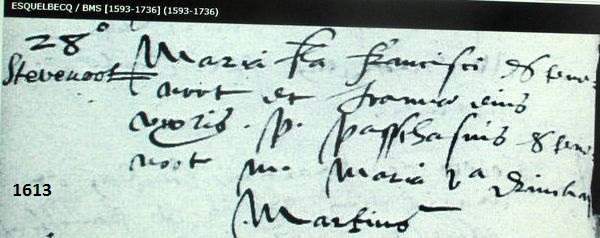 ESQUELBECQ / BMS [1593-1736] (1593-1736)
28°
Stevenoot
Maria fa Francisci Steve-
noot et eius
uxoris. p. Passchasius Steve-
noot m. Maria va
Martius
1613